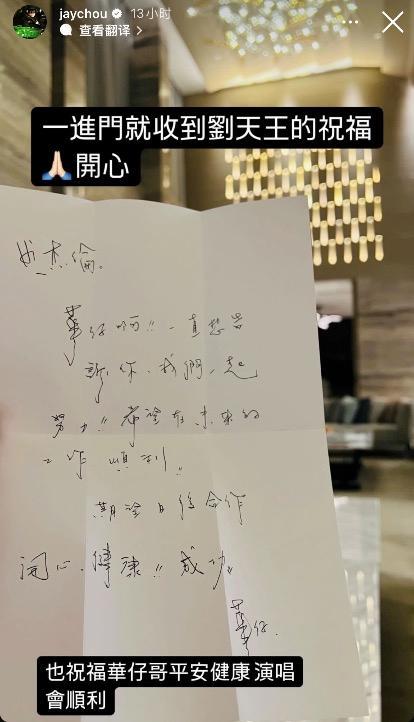 jaychou 13小时
查看翻译
一進門就收到劉天王的祝福
🙏🏻開心
杰倫。
華仔啊!!一直想告
訴你,我們一起
努力!!希望在未來的
工作順利!!
期望日後合作
開心.健康!!成功!!
華仔.
也祝福華仔哥平安健康 演唱
會順利